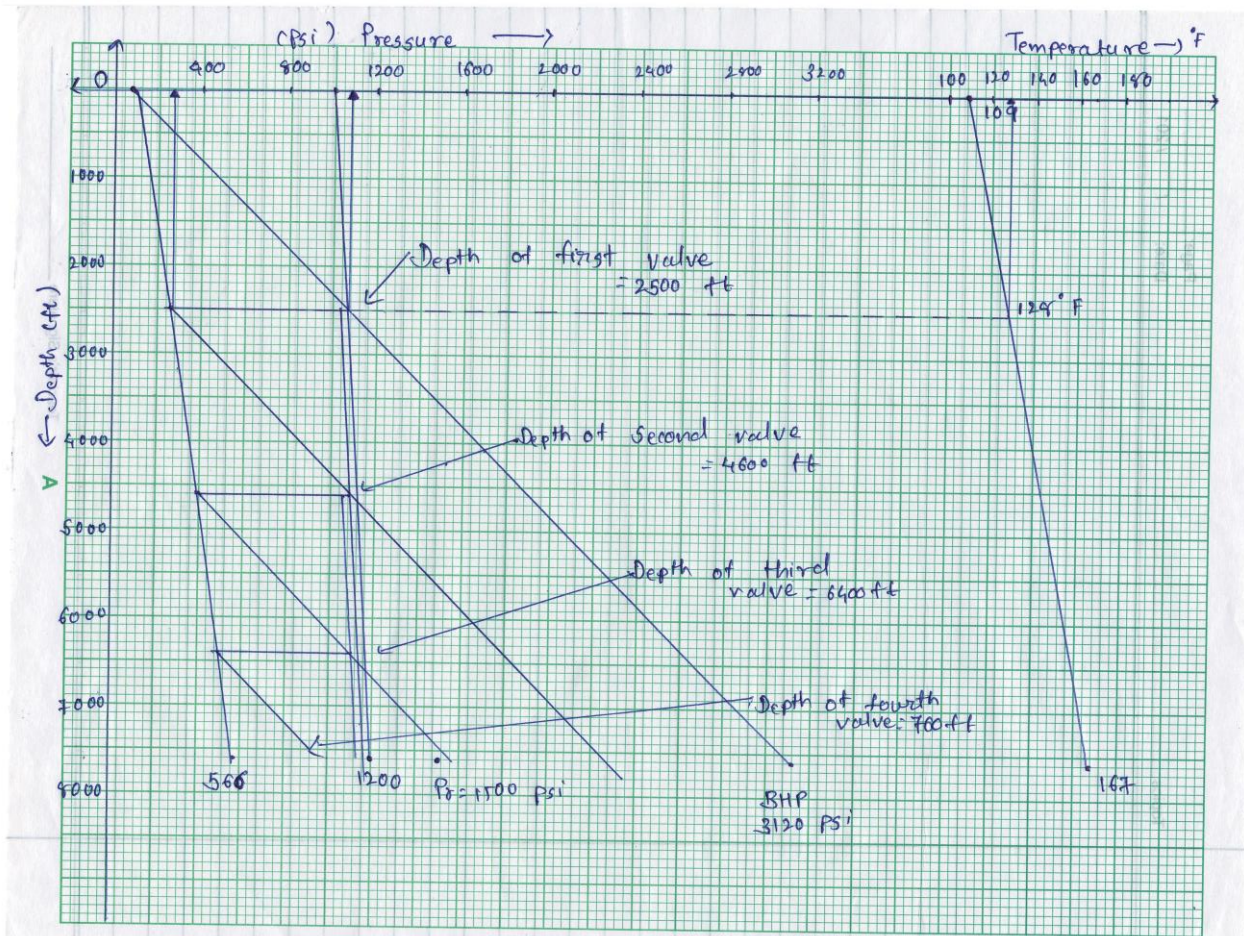 (Psi) Pressure →
Temperature → °F
0
400 800 1200 1600 2000 2400 2800 3200
100 120 140 160 180
109
1000
2000
3000
4000
5000
6000
7000
8000
← Depth (ft)
A
Depth of first valve
= 2500 ft
128° F
Depth of Second valve
= 4600 ft
Depth of third
valve = 6400 ft
Depth of fourth
valve = 700 ft
566
1200
Pr = 1500 psi
BHP
3120 PSi
167